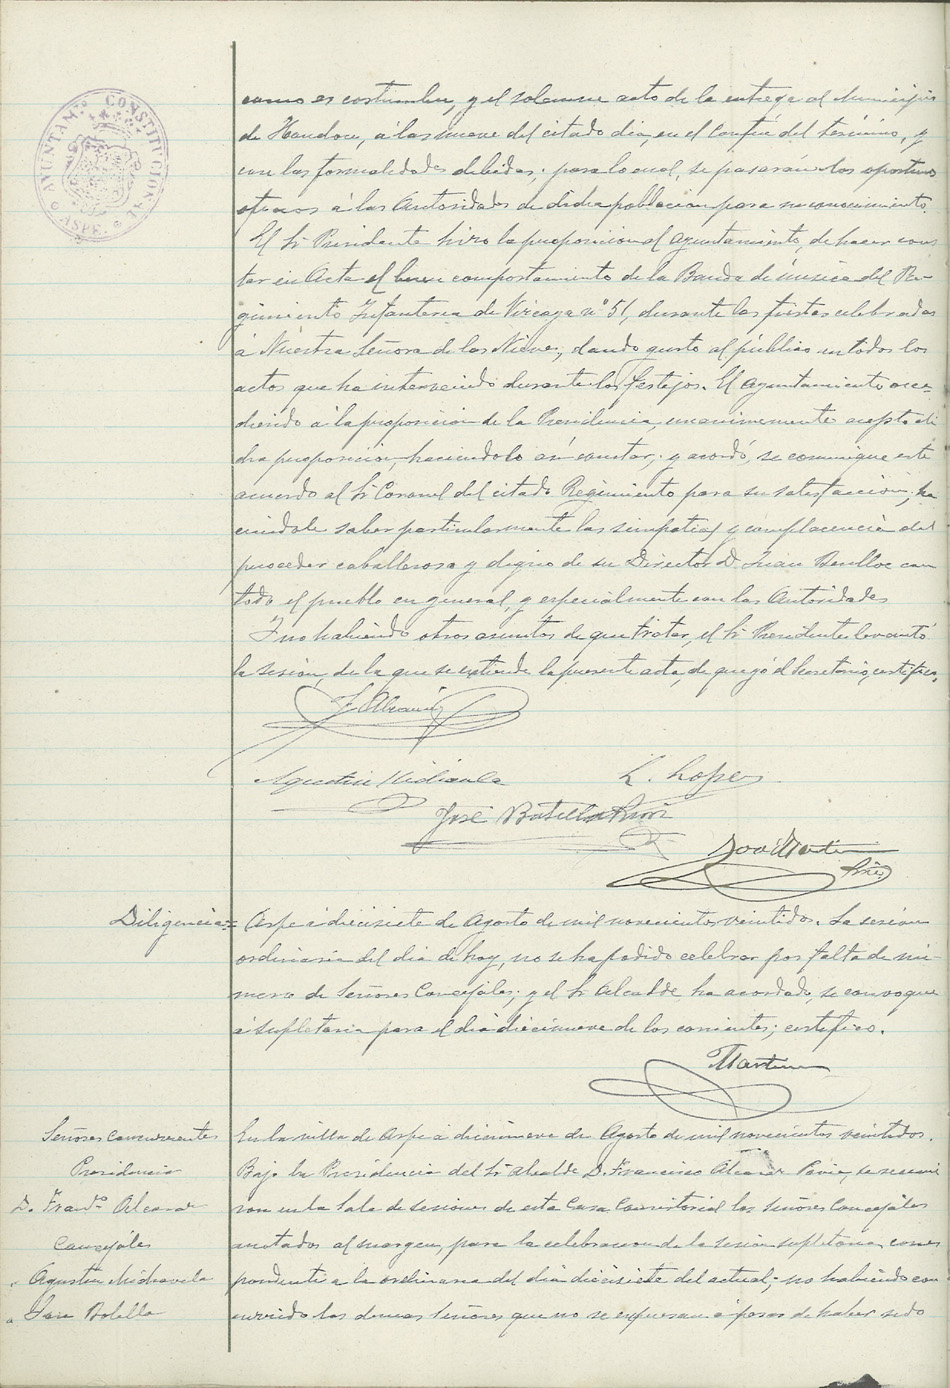 AYUNTAM.º CONSTITUCIONAL
ASPE.
como es costumbre, y el solemne acto de la entrega al Municipio
de Hondon, á las nueve del citado dia, en el confin del término, y
con las formalidades debidas; para lo cual, se pasarán los oportunos
oficios á las Autoridades de dicha poblacion para su conocimiento.
El Sr Presidente hizo la proposicion al Ayuntamiento, de hacer cons
tar en Acta el buen comportamiento de la Banda de música del Re-
gimiento Infanteria de Vizcaya nº 51, durante las fiestas celebradas
á Nuestra Señora de las Nieves, dando gusto al público en todos los
actos que ha intervenido durante los festejos. El Ayuntamiento acce-
diendo á la proposicion de la Presidencia, unanimemente aceptó di
cha proposicion, haciendolo asi constar; y acordó, se comunique este
acuerdo al Sr Coronel del citado Regimiento para su satisfaccion; ha
ciendole saber particularmente las simpatias y complacencia del
proceder caballeroso y digno de su Director D. Juan con
todo el pueblo en general, y especialmente con las Autoridades
Y no habiendo otros asuntos de que tratar, el Sr Presidente levantó
la sesion, de la que se extiende la presente acta, de que yó el Secretario, certifico.
F. Alcaraz
Agustin Midavila
L. Lopez
José Botella
Diligencia = Aspe á diecisiete de Agosto de mil novecientos veintidos. La sesion
ordinaria del dia de hoy, no se ha podido celebrar por falta de nú-
mero de Señores Concejales; y el Sr Alcalde, ha acordado, se convoque
á supletoria para el dia diecinueve de los corrientes; certifico.
Martinez
Señores concurrentes
Presidencia
D. Franco Alcaraz
Concejales
" Agustin Midavila
" Jose Botella
En la villa de Aspe á diecinueve de Agosto de mil novecientos veintidos.
Bajo la Presidencia del Sr Alcalde D. Francisco Alcaraz Pavia, se reunie
ron en la Sala de sesiones de esta Casa Consistorial los señores Concejales
anotados al margen, para la celebracion de la sesion supletoria corres
pondiente a la ordinaria del dia diecisiete del actual; no habiendo con
currido los demas Señores que no se expresan á pesar de haber sido